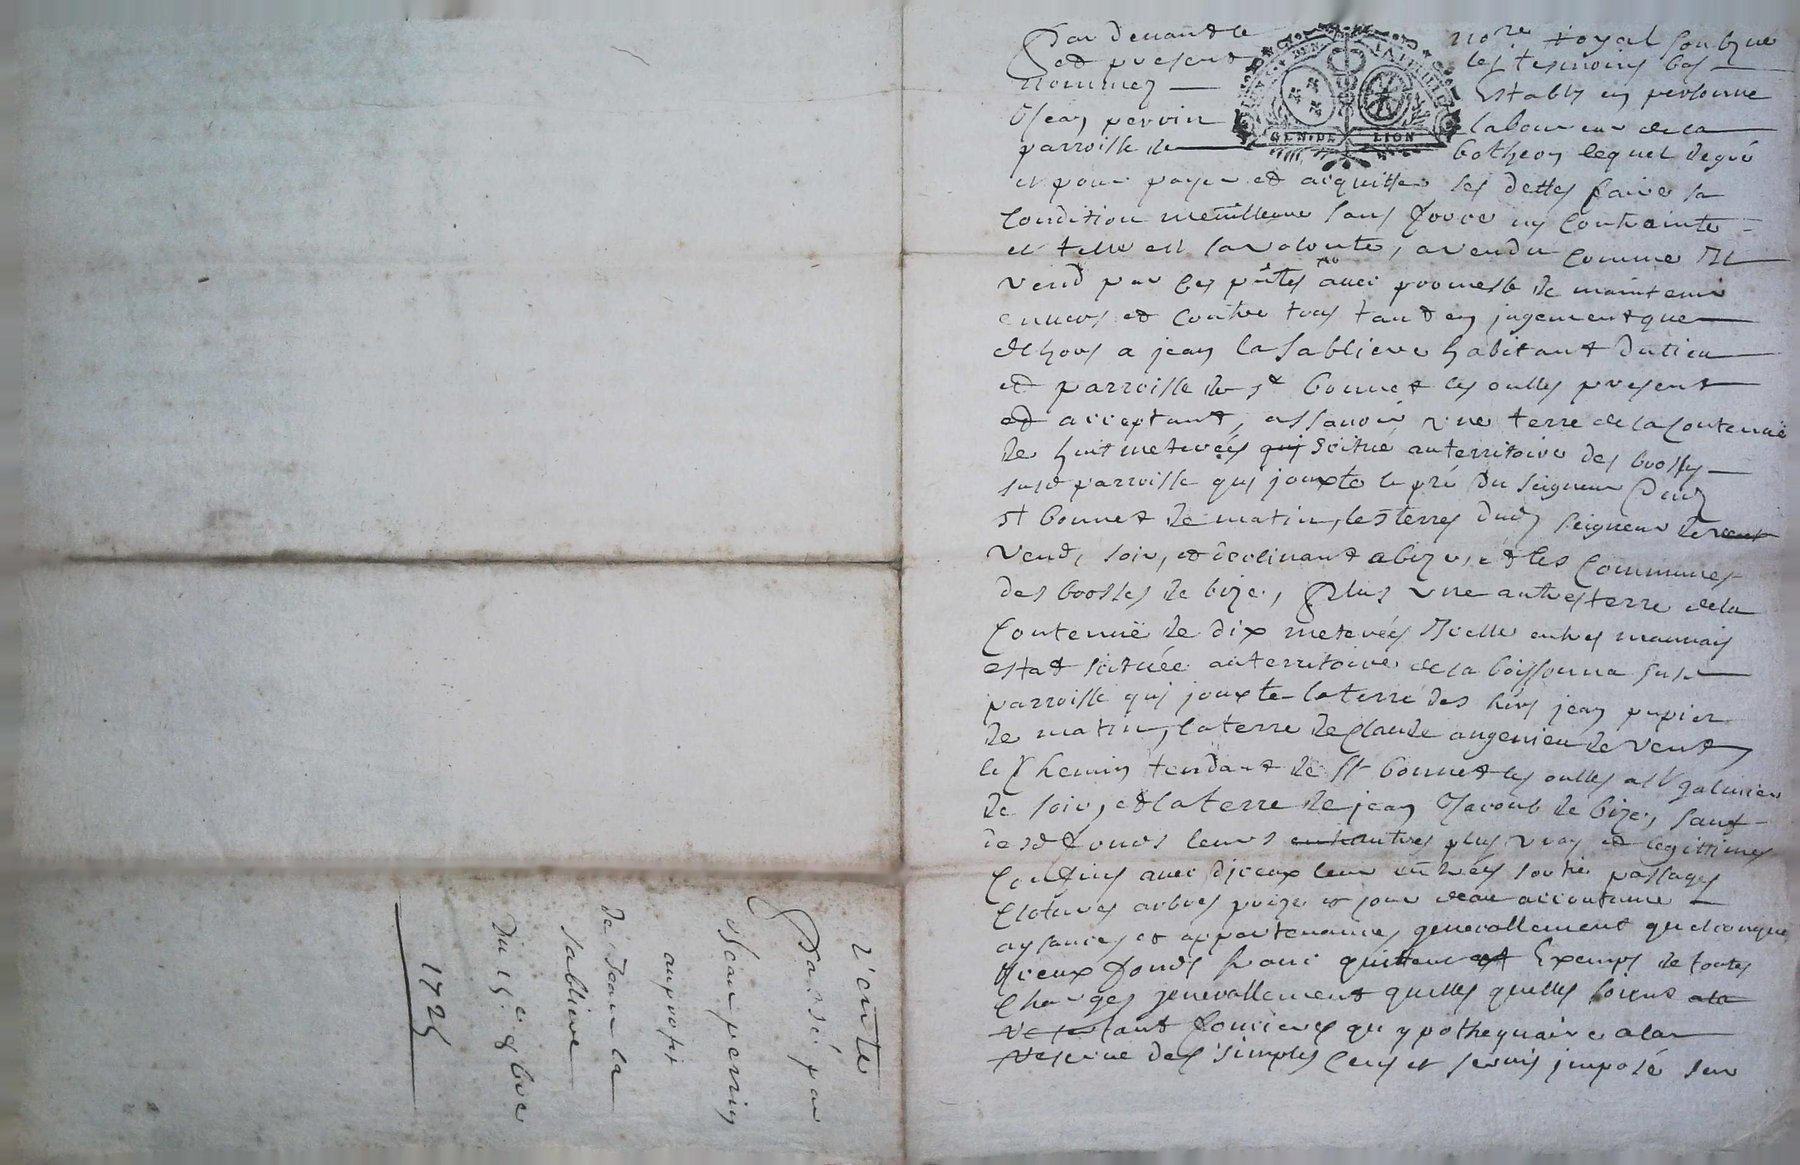 Par devant le no.re royal soubzne
et present les tesmoins bas
nommez estably en personne
Jean perrin laboureur de la
parroisse de botheon lequel de gré
et pour payer et acquitter ses dettes faire sa
condition meillieure sans force ny contrainte
et telle est sa volonte, a vendu comme Il
vend par ces p̃ntes avec promesse de maintenir
envers et contre tous tant en jugement que
dehors a jean la Sabliere habitant du lieu
et parroisse de st bonnet les oulles present
et acceptant, assavoir une terre de la Contenuë
de huit meterées qui scitué au territoire des brosses
susd parroisse qui jouxte le pré du seigneur dud
st bonnet de matin, les terres dud seigneur de vent
vend, soir, et declinant a bize, et les Communes
des brosses de bize, Plus une autre terre de la
Contenuë de dix meterées Icelle en tres mauvais
estat scituée au territoire de la boissonna susd
parroisse qui jouxte la terre des hers jean pupier
de matin, la terre de Claude angenieu de vent,
le Chemin tendant de St bonnet les oulles a st galmier
de soir, et la terre de jean Jacoub de bize, sauf
desd fonds leurs autres plus vrays et legitimes
Confins avec d'iceux leur entrées sortie passages
Clotures arbres prize et cour deau accoutumé
aysances et appartenances generallement quelconques
Iceux fonds franc quitte et Exemps de toutes
Charges generallement quelles quelles soient a la
re tant foncieres qu ypothequaire a la
reserve des simples cens et servis imposé sur
GEN. DE LION
Vente
Passé par
Jean perrin
au profit
de Jean la
Sabliere
Du 15e 8bre
1725